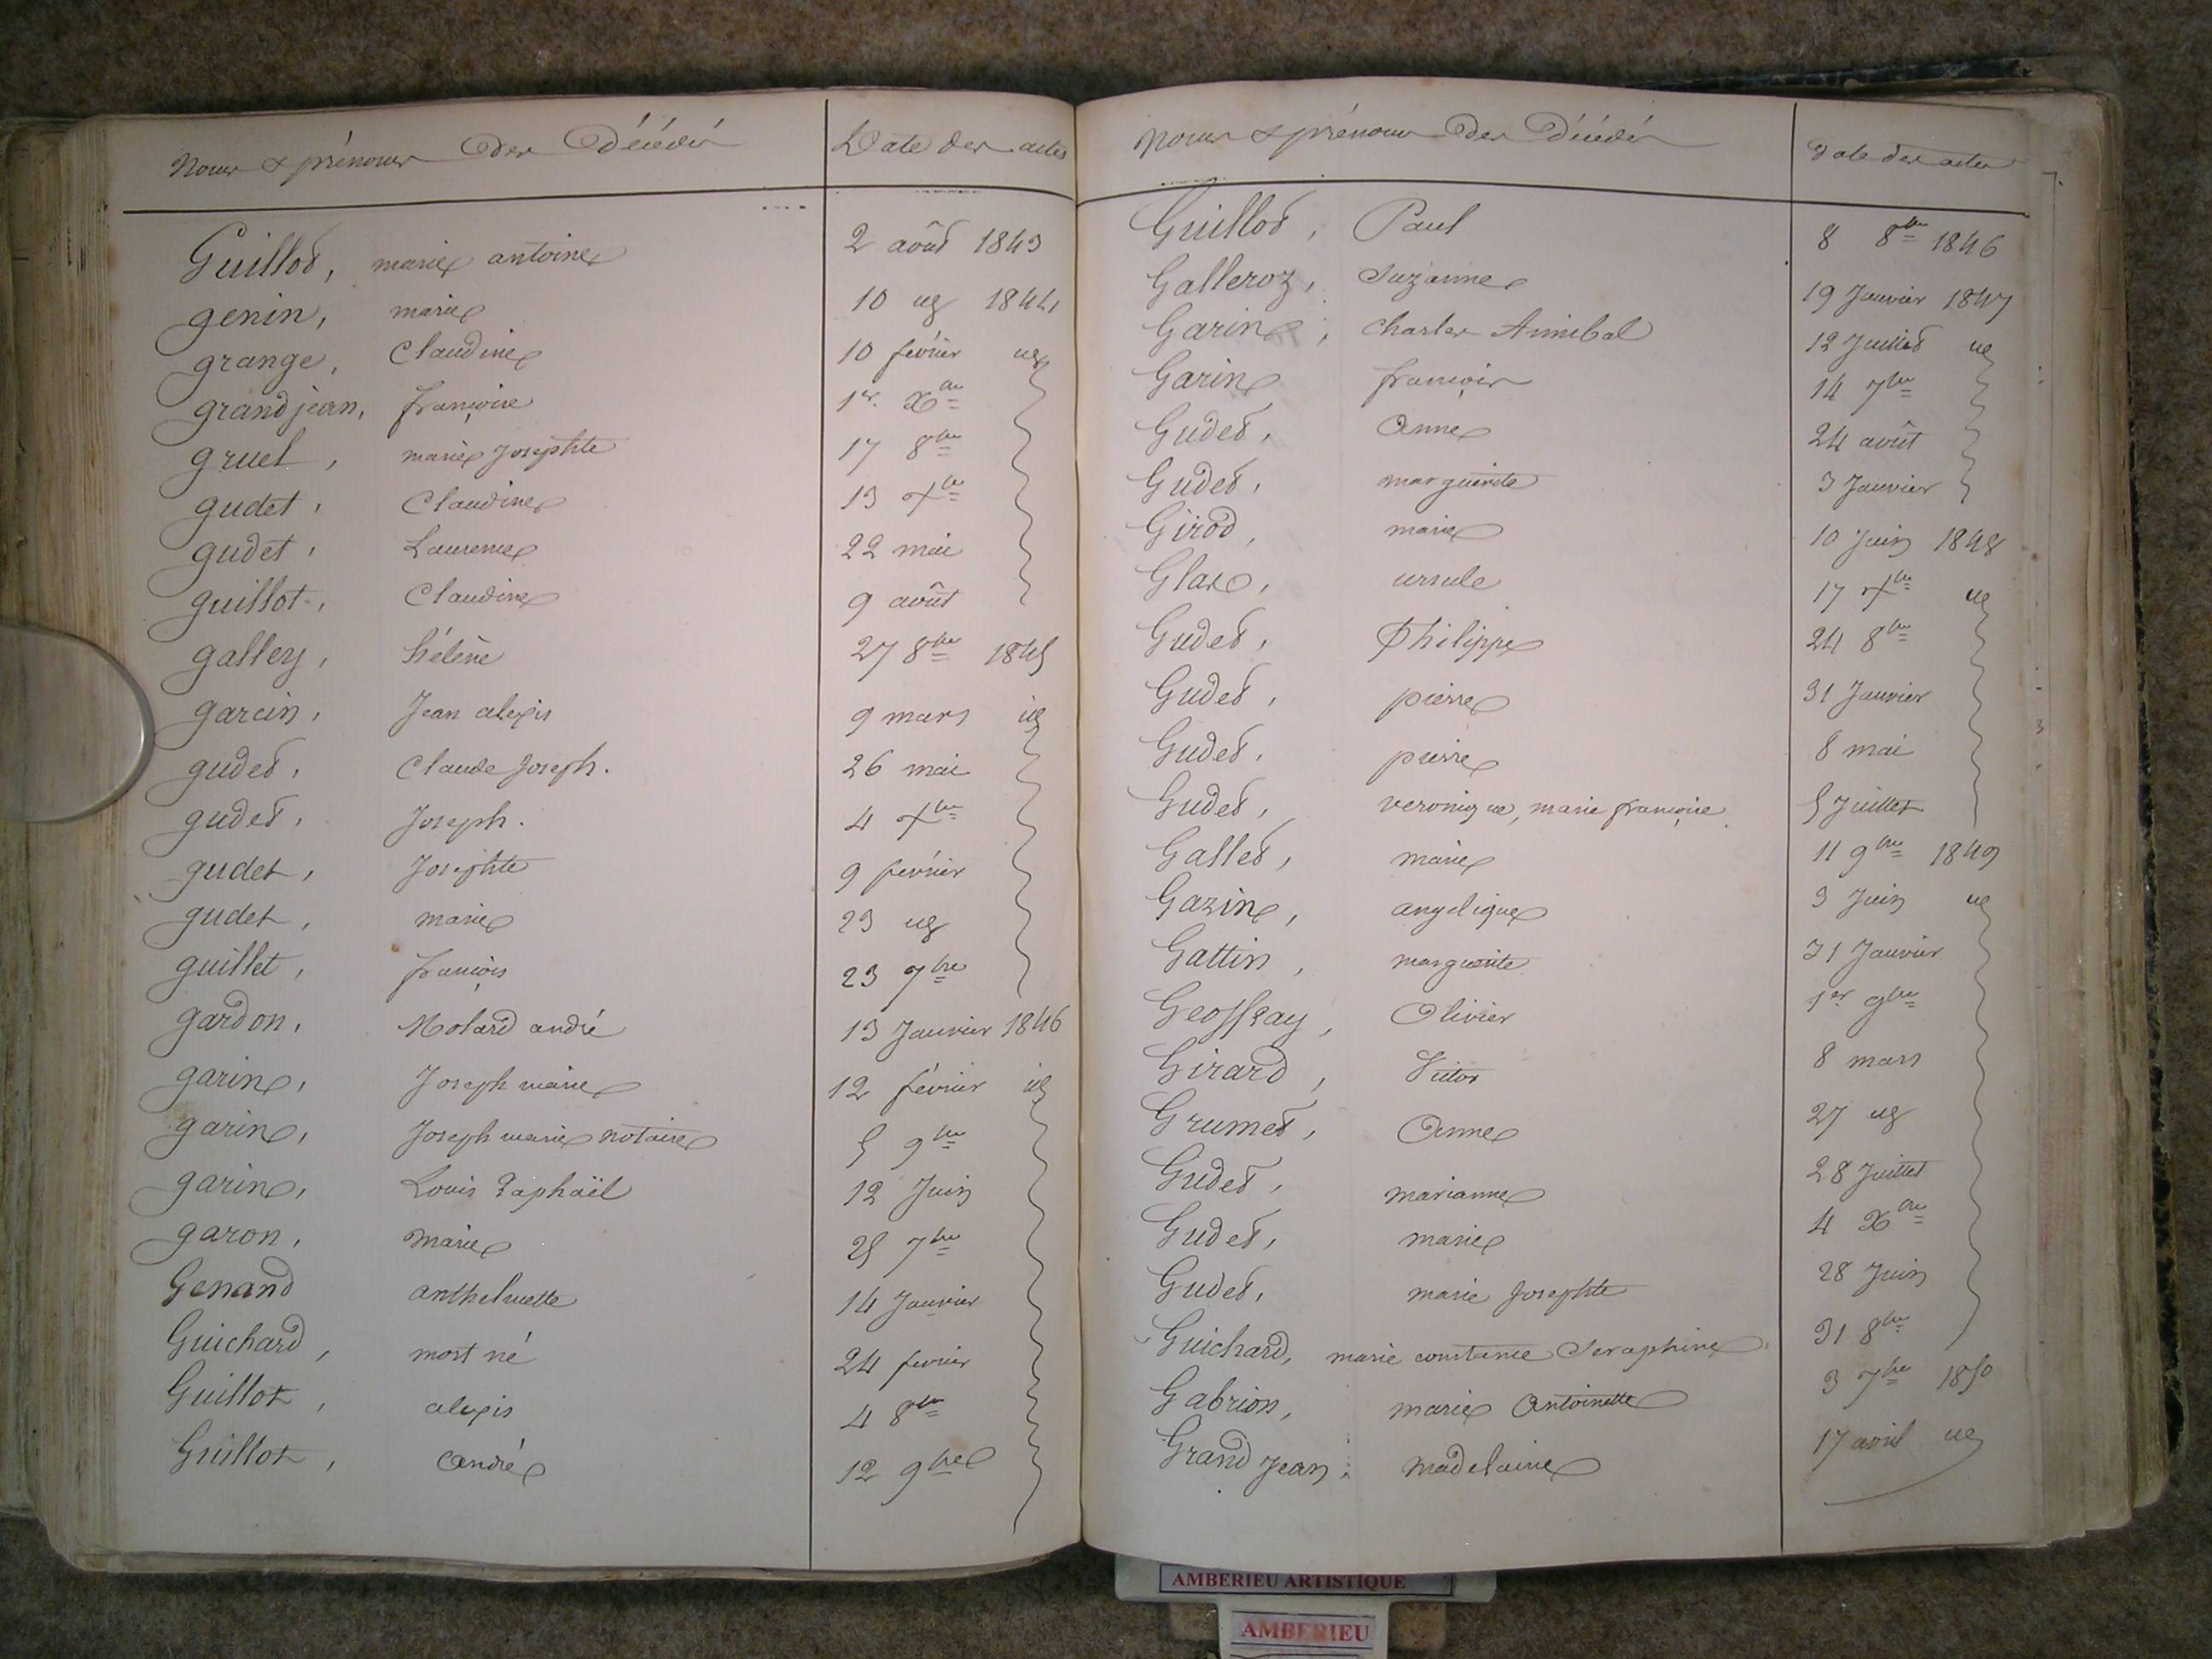 Noms & prénoms des Décédés
Date des actes
Guillot, marie antoine 2 août 1843
genin, marie 10 id 1844
grange, Claudine 10 février id
grandjean, françoise 1er Xbre
gruel, marie Josephte 17 8bre
gudet, Claudine 13 7bre
gudet, Laurence 22 mai
guillot, Claudine 9 août
galley, hélène 27 8bre 1845
garcin, Jean alexis 9 mars id
gudet, Claude Joseph. 26 mai
gudet, Joseph. 4 7bre
gudet, Josephte 9 février
gudet, marie 23 id
guillet, françois 23 7bre
gardon, Molard andré 13 Janvier 1846
garin, Joseph marie 12 février id
garin, Joseph marie notaire 5 9bre
garin, Louis Raphaël 12 Juin
garon, marie 25 7bre
Genand anthelmette 14 Janvier
Guichard, mort né 24 fevrier
Guillot, alexis 4 8bre
Guillot, André 12 9bre
Noms & prénoms des Décédés
Date des actes
Guillot, Paul 8 8bre 1846
Galleroz, Suzanne 19 Janvier 1847
Garin, Charles Annibal 12 Juillet id
Garin françois 14 7bre
Gudet, Anne 24 août
Gudet, marguerite 3 Janvier
Girod, marie 10 Juin 1848
Glas, ursule 17 7bre id
Gudet, Philippe 24 8bre
Gudet, pierre 31 Janvier
Gudet, pierre 8 mai
Gudet, veronique, marie françoise 5 Juillet
Gallet, marie 11 9bre 1849
Gazin, angelique 3 Juin id
Gattin, marguerite 31 Janvier
Geoffray, Olivier 1er 9bre
Girard, Victor 8 mars
Grumet, Anne 27 id
Gudet, marianne 28 Juillet
Gudet, marie 4 Xbre
Gudet, marie Josephte 28 Juin
Guichard, marie constance Seraphine 31 8bre
Gabrion, marie Antoinette 3 7bre 1850
Grand Jean, madelaine 17 avril id
AMBERIEU ARTISTIQUE
AMBERIEU